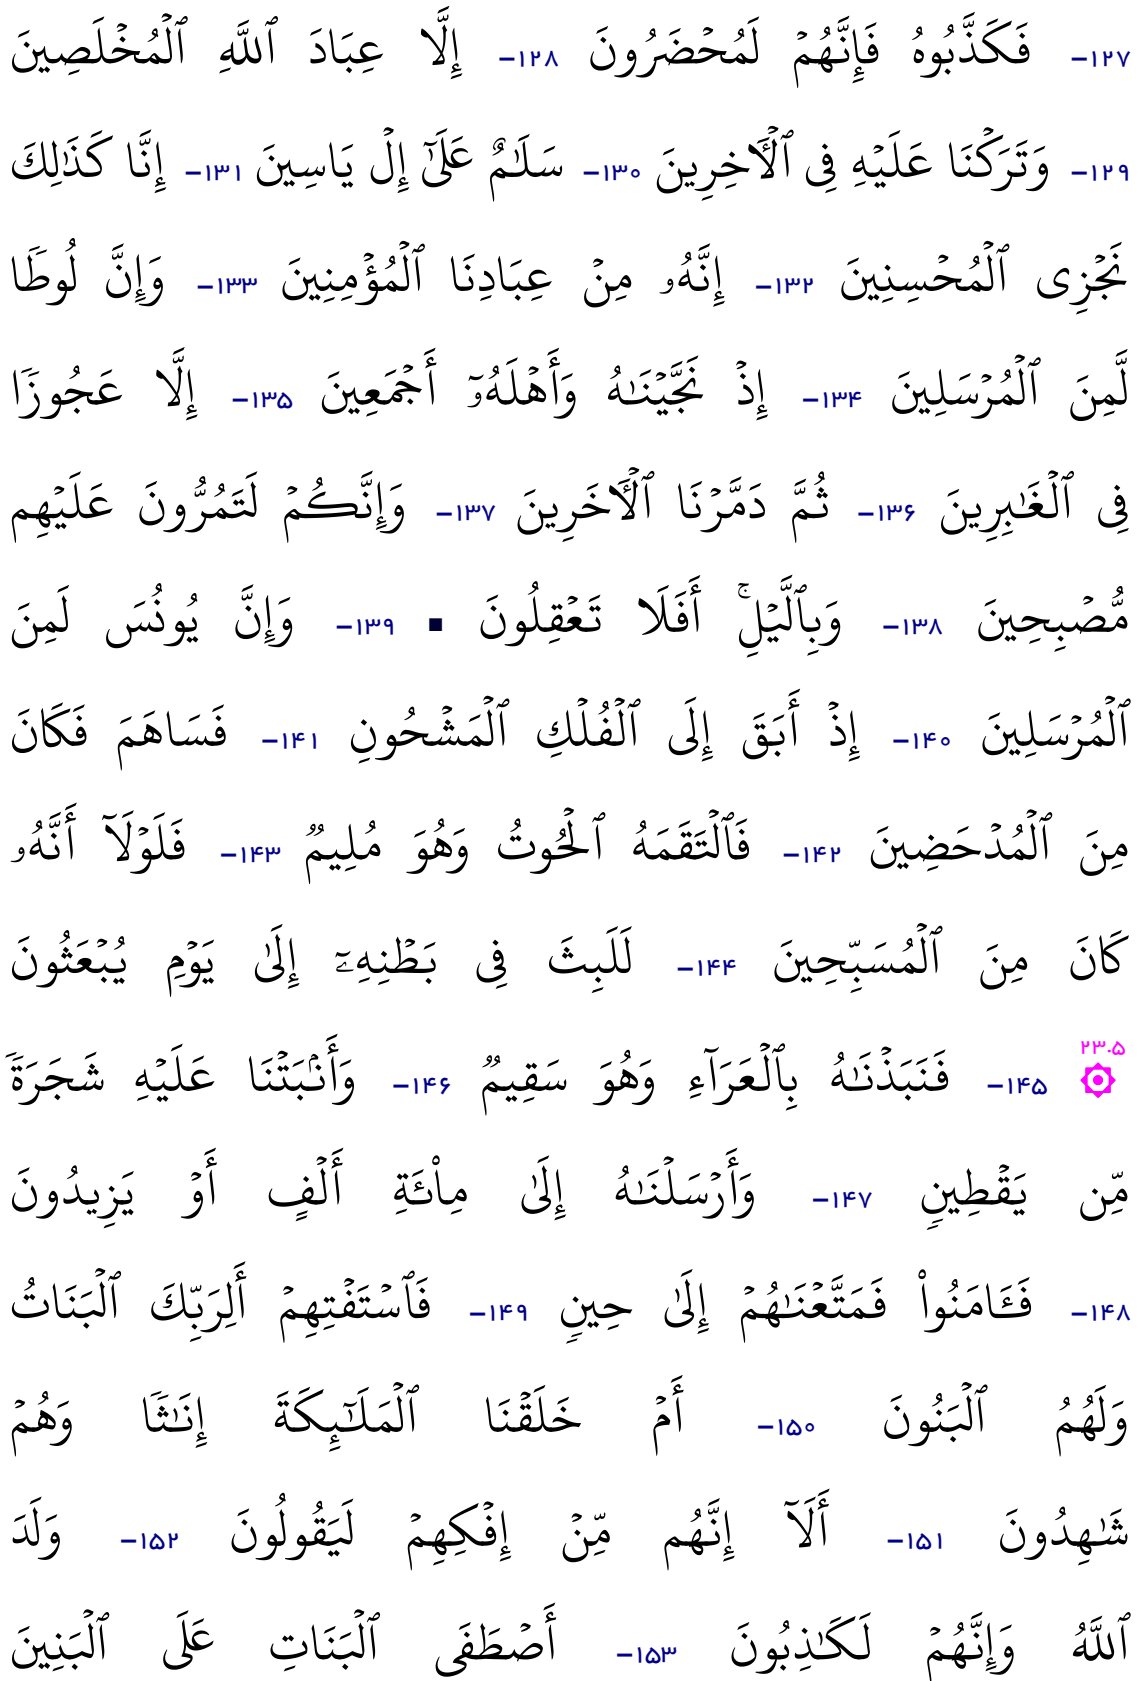 ۱۲۷- فَكَذَّبُوهُ فَإِنَّهُمۡ لَمُحۡضَرُونَ ۱۲۸- إِلَّا عِبَادَ ٱللَّهِ ٱلۡمُخۡلَصِينَ
۱۲۹- وَتَرَكۡنَا عَلَيۡهِ فِى ٱلۡأَٓخِرِينَ ۱۳۰- سَلَٰمٌ عَلَىٰٓ إِلۡ يَاسِينَ ۱۳۱- إِنَّا كَذَٰلِكَ
نَجۡزِى ٱلۡمُحۡسِنِينَ ۱۳۲- إِنَّهُۥ مِنۡ عِبَادِنَا ٱلۡمُؤۡمِنِينَ ۱۳۳- وَإِنَّ لُوطࣰا
لَّمِنَ ٱلۡمُرۡسَلِينَ ۱۳۴- إِذۡ نَجَّيۡنَٰهُ وَأَهۡلَهُۥٓ أَجۡمَعِينَ ۱۳۵- إِلَّا عَجُوزࣰا
فِى ٱلۡغَٰبِرِينَ ۱۳۶- ثُمَّ دَمَّرۡنَا ٱلۡأٓخَرِينَ ۱۳۷- وَإِنَّكُمۡ لَتَمُرُّونَ عَلَيۡهِم
مُّصۡبِحِينَ ۱۳۸- وَبِٱلَّيۡلِۚ أَفَلَا تَعۡقِلُونَ ▪ ۱۳۹- وَإِنَّ يُونُسَ لَمِنَ
ٱلۡمُرۡسَلِينَ ۱۴۰- إِذۡ أَبَقَ إِلَى ٱلۡفُلۡكِ ٱلۡمَشۡحُونِ ۱۴۱- فَسَاهَمَ فَكَانَ
مِنَ ٱلۡمُدۡحَضِينَ ۱۴۲- فَٱلۡتَقَمَهُ ٱلۡحُوتُ وَهُوَ مُلِيمࣱ ۱۴۳- فَلَوۡلَآ أَنَّهُۥ
كَانَ مِنَ ٱلۡمُسَبِّحِينَ ۱۴۴- لَلَبِثَ فِى بَطۡنِهِۦٓ إِلَىٰ يَوۡمِ يُبۡعَثُونَ
۲۳.۵ ۞ ۱۴۵- فَنَبَذۡنَٰهُ بِٱلۡعَرَآءِ وَهُوَ سَقِيمࣱ ۱۴۶- وَأَنۢبَتۡنَا عَلَيۡهِ شَجَرَةࣰ
مِّن يَقۡطِينࣲ ۱۴۷- وَأَرۡسَلۡنَٰهُ إِلَىٰ مِاْئَةِ أَلۡفٍ أَوۡ يَزِيدُونَ
۱۴۸- فَـَٔامَنُواْ فَمَتَّعۡنَٰهُمۡ إِلَىٰ حِينࣲ ۱۴۹- فَٱسۡتَفۡتِهِمۡ أَلِرَبِّكَ ٱلۡبَنَاتُ
وَلَهُمُ ٱلۡبَنُونَ ۱۵۰- أَمۡ خَلَقۡنَا ٱلۡمَلَٰٓئِكَةَ إِنَٰثࣰا وَهُمۡ
شَٰهِدُونَ ۱۵۱- أَلَآ إِنَّهُم مِّنۡ إِفۡكِهِمۡ لَيَقُولُونَ ۱۵۲- وَلَدَ
ٱللَّهُ وَإِنَّهُمۡ لَكَٰذِبُونَ ۱۵۳- أَصۡطَفَى ٱلۡبَنَاتِ عَلَى ٱلۡبَنِينَ